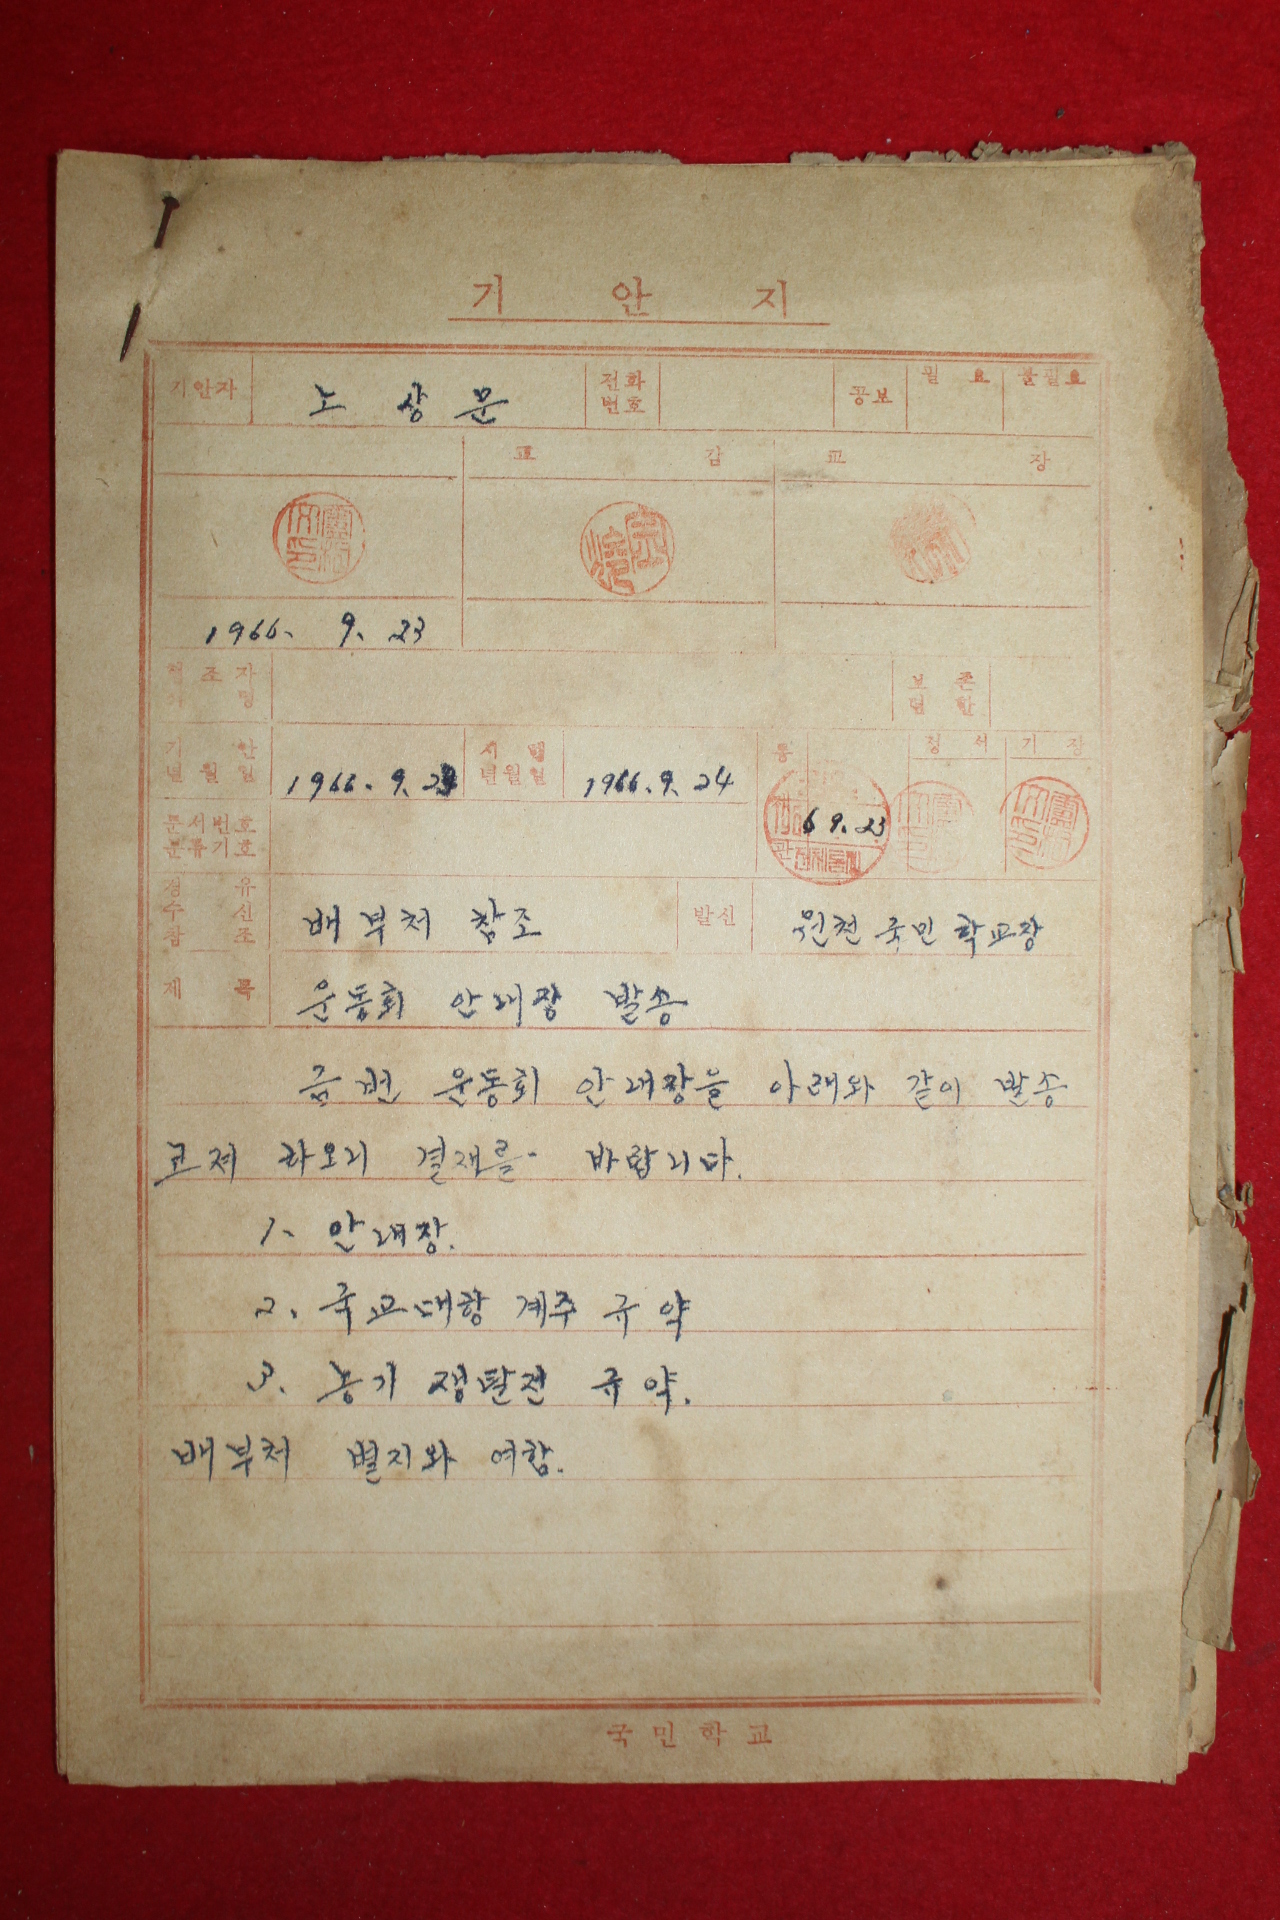 기 안 지
기안자 노 상 문 전화번호 공보 필 요 불필요
교 감 교 장
1966. 9. 23
협 조 자 보 존
명 년 한
기 안 년 월 일 1966. 9. 23 시 행 년월일 1966. 9. 24 통 정 서 기 장
6 9. 23
문서번호
분류기호
경 유
수 신
참 조
배부처 참조 발신 원천 국민 학교장
제 목 운동회 안내장 발송
금번 운동회 안내장을 아래와 같이 발송
코져 하오니 결재를 바랍니다.
1. 안내장.
2. 국교대항 계주 규약
3. 농기 쟁탈전 규약.
배부처 별지와 여함.
국민학교